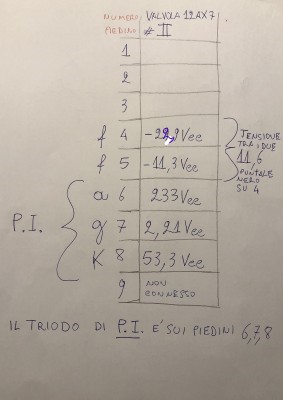 NUMERO PIEDINO VALVOLA 12AX7 # II
1
2
3
f 4 -22,9 Vcc
f 5 -11,3 Vcc
TENSIONE TRA I DUE 11,6 PUNTALE NERO SU 4
a 6 233 Vcc
g 7 2,21 Vcc
K 8 53,3 Vcc
P.I.
9 NON CONNESSO
IL TRIODO DI P.I. E' SUI PIEDINI 6,7,8